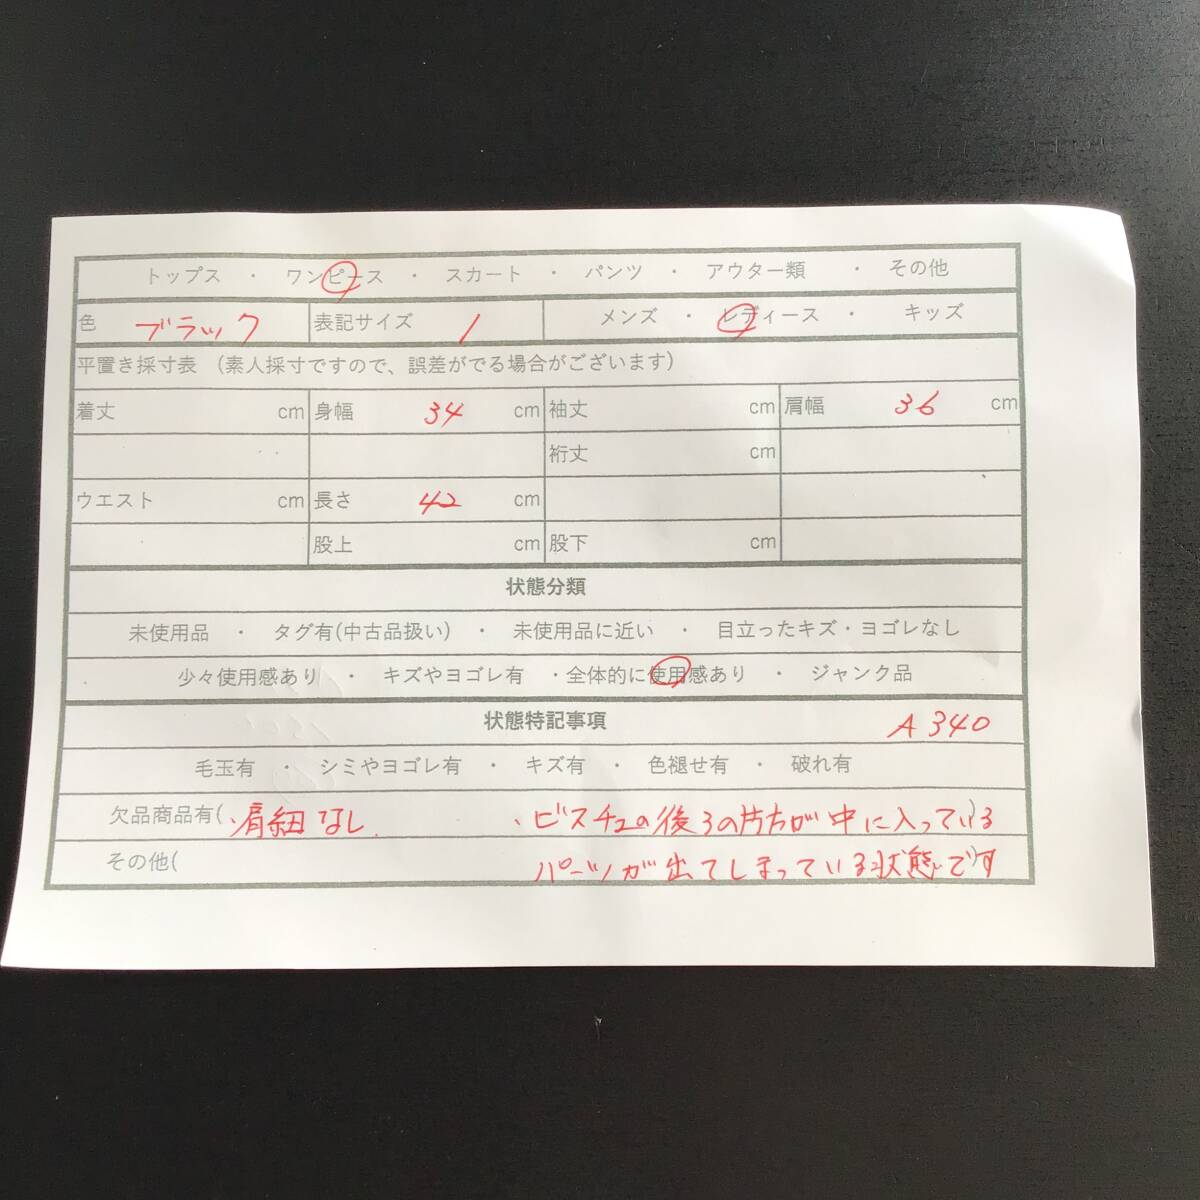 トップス ・ ワンピース ・ スカート ・ パンツ ・ アウター類 ・ その他
色 ブラック 表記サイズ 1 メンズ ・ レディース ・ キッズ
平置き採寸表 （素人採寸ですので、誤差がでる場合がございます）
着丈 cm 身幅 34 cm 袖丈 cm 肩幅 36 cm
裄丈 cm
ウエスト cm 長さ 42 cm
股上 cm 股下 cm
状態分類
未使用品 ・ タグ有(中古品扱い) ・ 未使用品に近い ・ 目立ったキズ・ヨゴレなし
少々使用感あり ・ キズやヨゴレ有 ・全体的に使用感あり ・ ジャンク品
状態特記事項 A340
毛玉有 ・ シミやヨゴレ有 ・ キズ有 ・ 色褪せ有 ・ 破れ有
欠品商品有( ・肩紐なし ・ビスチェの後ろの片方が中に入っている )
その他( パーツが出てしまっている状態です )